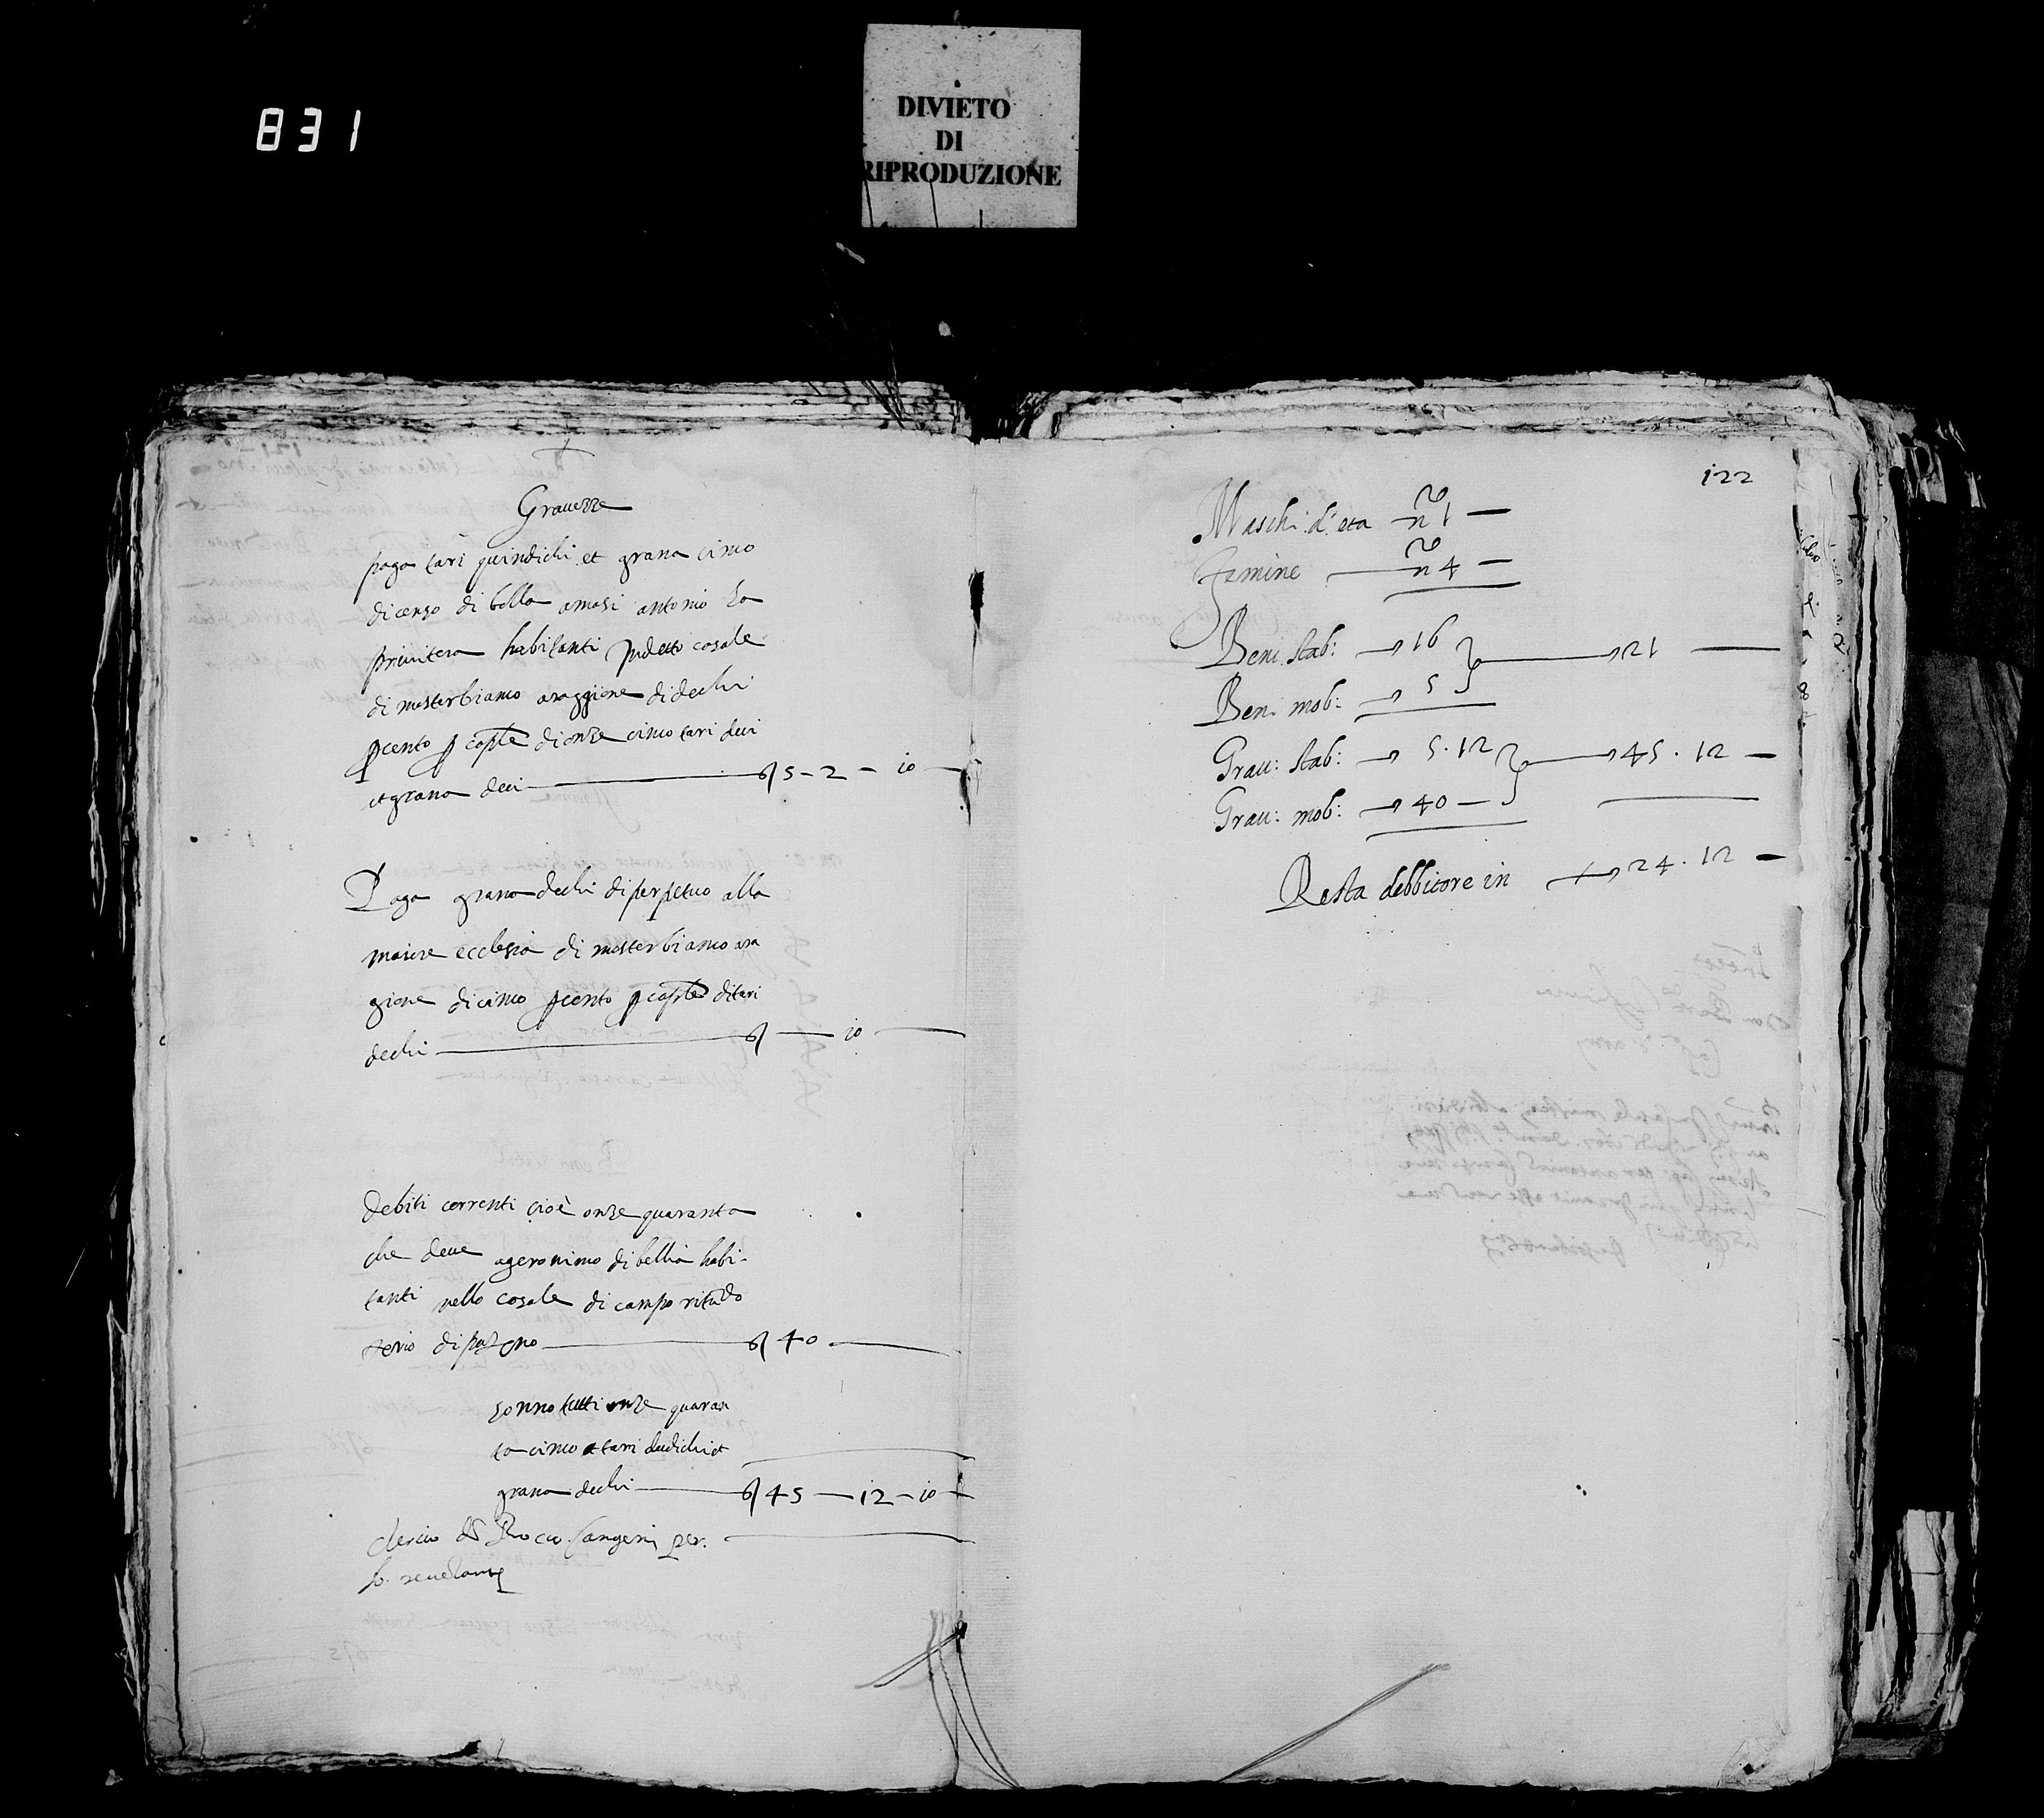 831
DIVIETO
DI
RIPRODUZIONE
Gravezze
paga tari quindichi et grana cinco
di censo di bella amasi antonio la
privitera habitanti in detto casale
di misterbianco a raggione di dechi
per cento per capitale di onze cinco tari deci
et grana deci 5 - 2 - 10
Paga grana dechi di perpetuo alla
maire ecclesia di misterbianco ara
gione di cinco per cento per capitale di tari
dechi 10
debiti correnti cioè onze quaranta
che deve a geronimo di bella habi-
tanti nello casale di campo ritundo
40
sonno tutti onze quaran
ta cinco et tari dudichi et
grana dechi 45 - 12 - 10
clerico Rocco per.
lo revelante
122
Maschi d'eta n 1
Femine n 4
Beni stab: 16 21
Ben. mob: 5
Grav: stab: 5.12 45.12
Grav: mob: 40
Resta debbitore in 24.12